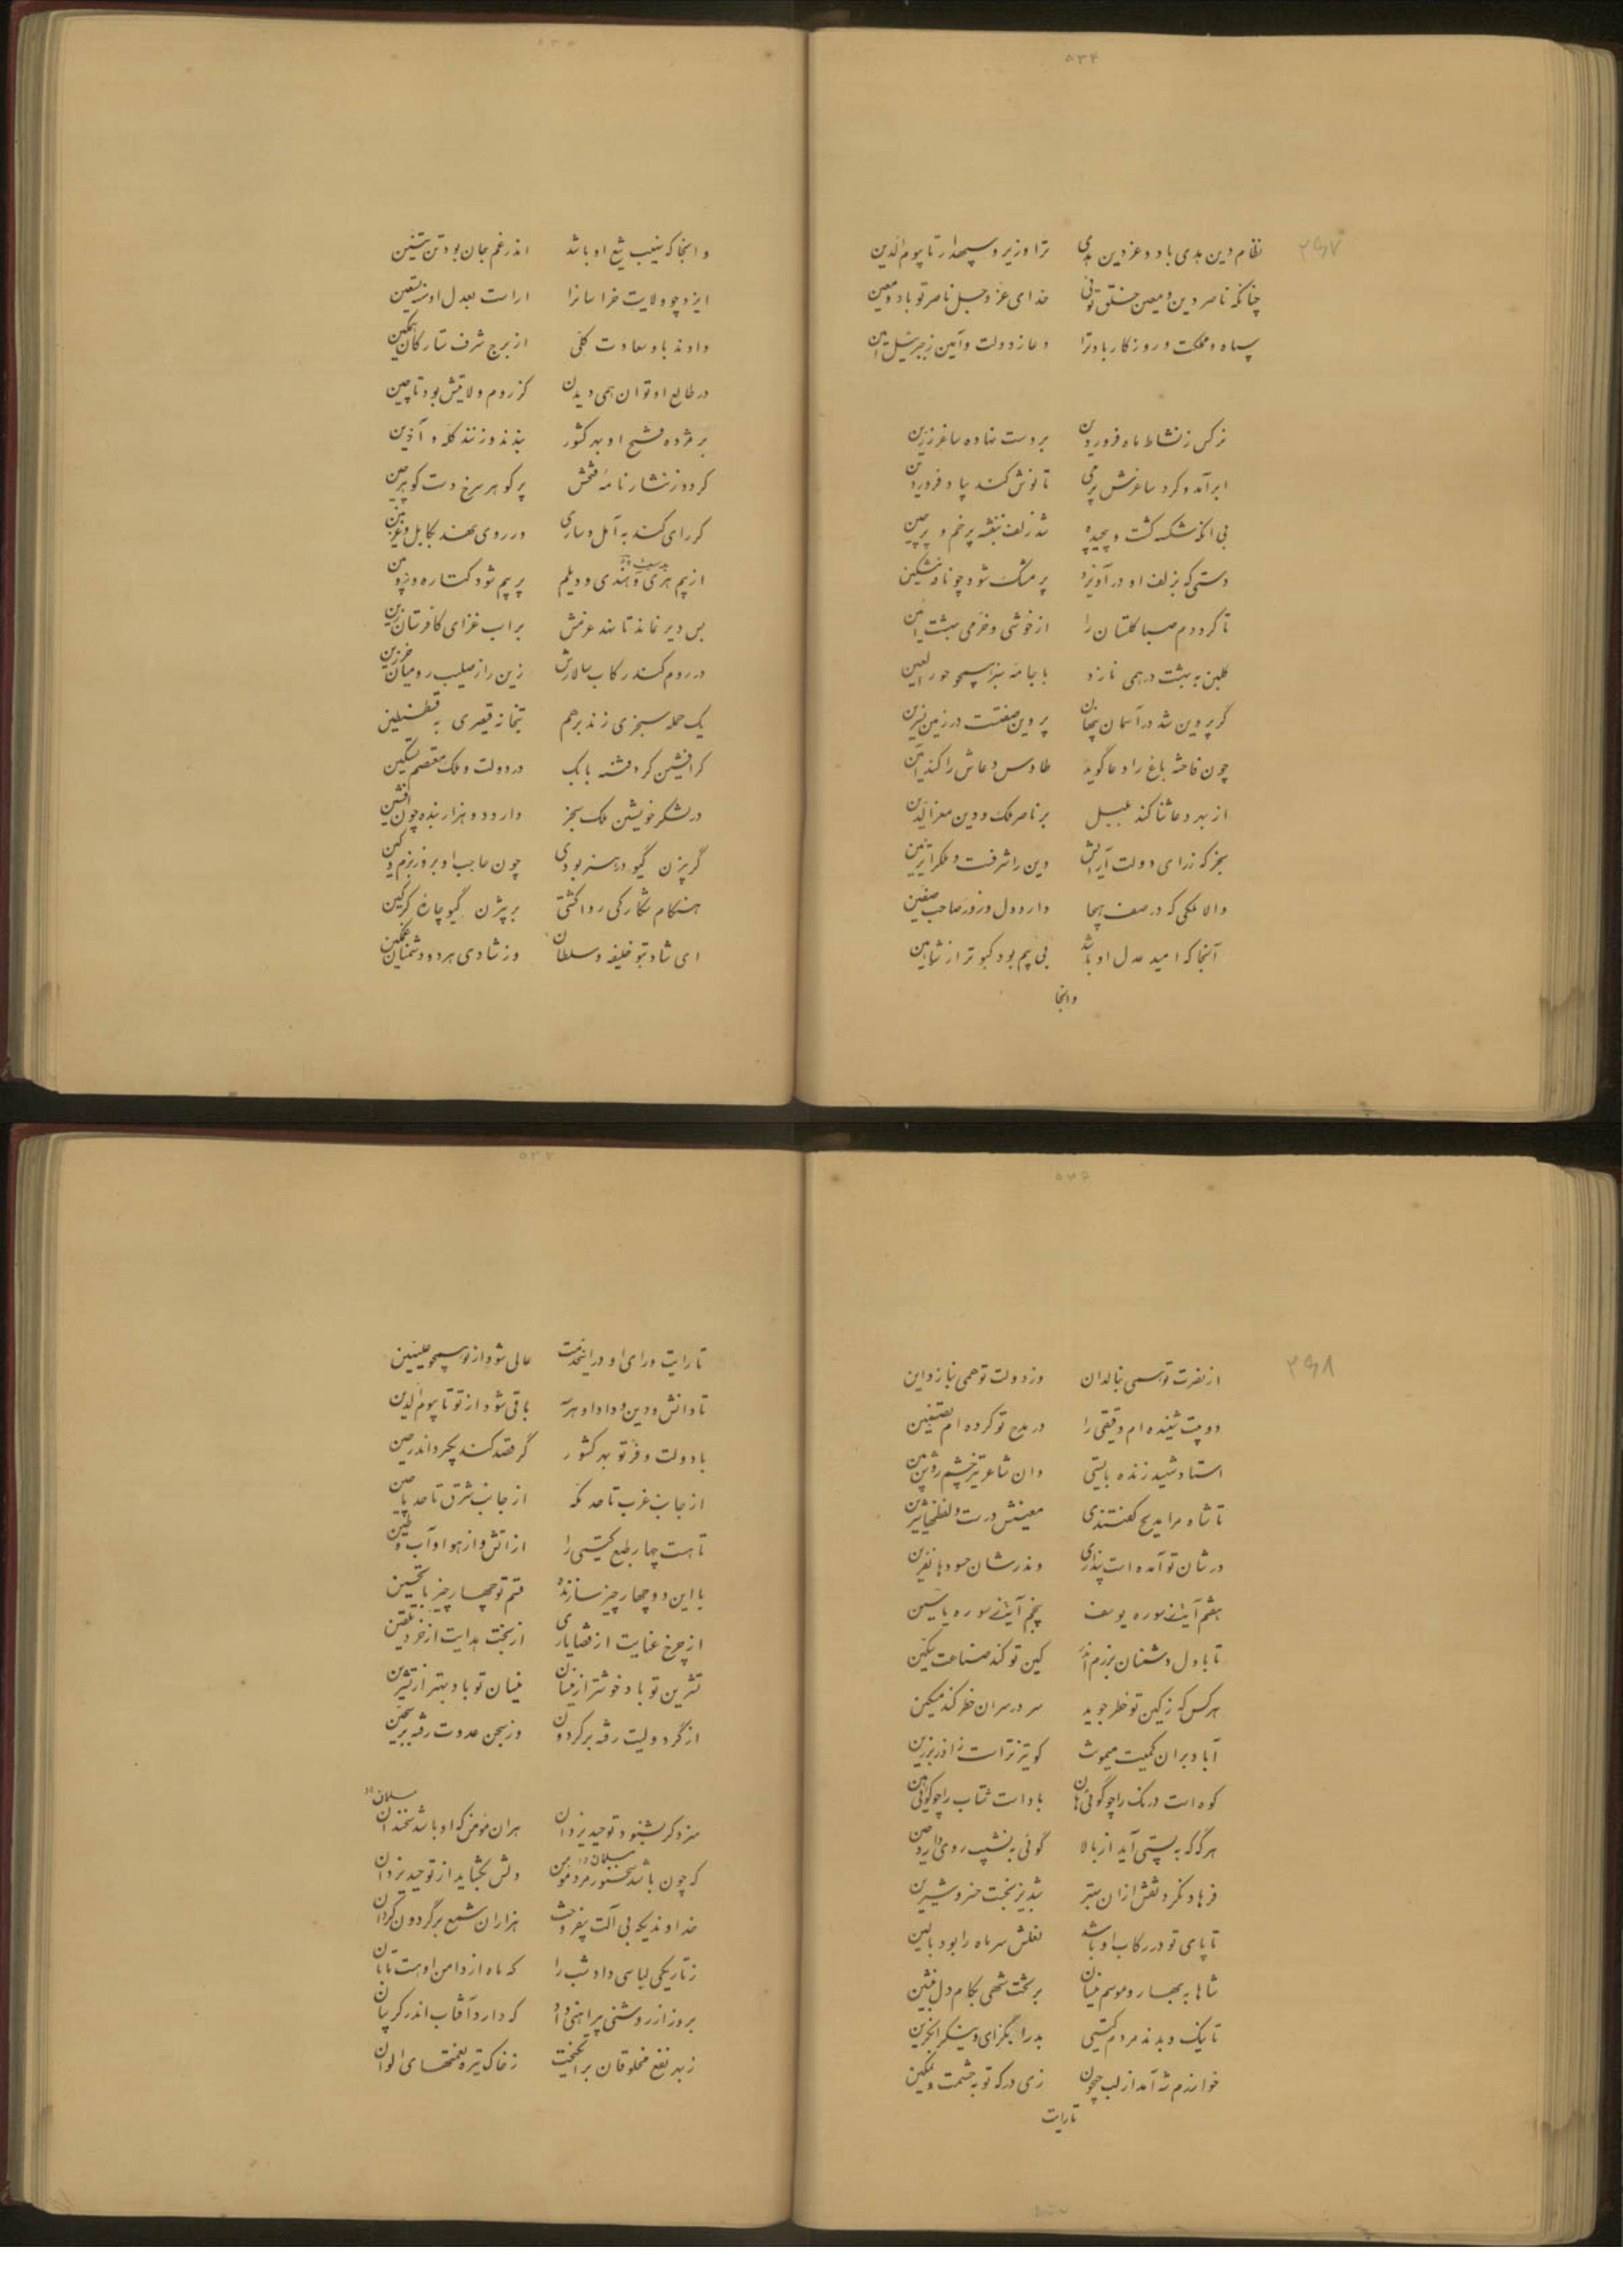 ۵۳۴
۳۶۷
نظام دین هدی باد و عز دین هدی ترا وزیر و سپهدار تا بیوم الدین
چنانکه ناصر دین و معین خلق توئی خدای عز و جل ناصر تو باد و معین
سپاه و مملکت و روزگار باد ترا دعا ز دولت و آمین ز جبرئیل امین
نرگس ز نشاط ماه فروردین بر دست نهاده ساغر زرین
ابر آمد و کرد ساغرش پر می تا نوش کند بیاد فروردین
بی آنکه شکسته گشت و پیچیده شد زلف بنفشه پر خم و پرچین
دستی که بزلف او درآویزد پر مشک شود چو نافه مشکین
تا کرد دم صبا گلستان را از خوشی و خرمی بهشت آئین
گلبن به بهشت در همی نازد با جامه سبز همچو حور العین
گر پروین شد در آسمان پنهان پروین صفتست در زمین نسرین
چون فاخته باغ را دعا گوید طاوس دعاش را کند آمین
از بهر دعا ثنا کند بلبل بر ناصر ملک و دین معز الدین
سنجر که ز رای دولت آرایش دین را شرفست و ملک را تزیین
والا ملکی که در صف هیجا دارد دل و زور صاحب صفین
آنجا که امید عدل او باشد بی بیم بود کبوتر از شاهین
وانجا
۵۳۵
وانجا که نهیب تیغ او باشد اندر غم جان بود تن تنین
ایزد چو ولایت خراسانرا آراست بعدل او
دادند باو سعادت کلی از برج شرف ستارگان همگین
در طالع او توان همی دیدن کز روم ولایتش بود تا چین
بر مژده فتح او بهر کشور بندند و زنند کله و آذین
گردد ز نثار نامه فتحش پر گوهر سرخ دست گوهرچین
گر رای کند به آمل و ساری ور روی نهد بکابل و غزنین
از بیم هری و هندی و دیلم پر بیم شود کتاره و زوبین
بس دیر نماند تا نهد عزمش بر اسب غزای کافرستان زین
در روم کند رکاب سالارش زین را ز صلیب رومیان خرزین
یک حمله سنجری زند بر هم بتخانه قیصری به قسطنطین
گر افشین کرد فتنه بابک در دولت و ملک معتصم تسکین
در لشکر خویشتن ملک سنجر دارد دو هزار بنده چون افشین
گر بیژن گیو در هنر بودی چون حاجب او بروز بزم و کین
هنگام شکار کی روا گشتی بر بیژن گیو چاره گرگین
ای شاد بتو خلیفه و سلطان وز شادی هر دو دشمنان غمگین
۵۳۶
۳۶۸
از نصرت تو همی ببالد آن وز دولت تو همی بنازد این
دو بیت شنیده‌ام دقیقی را در مدح تو کرده‌ام بتضمین
استاد شهید زنده بایستی وان شاعر تیره چشم روشن بین
تا شاه مرا مدیح گفتندی معنیش درست و لفظها شیرین
در شان تو آمده است پنداری وندر شان حسود با نفرین
هفتم آیت ز سوره یوسف پنجم آیت ز سوره یاسین
تا با دل دشمنان برزم اندر کین تو کند صناعت سکین
هر کس که ز کین تو خطر جوید سر در سر آن خطر کند مسکین
آباد بر آن کمیت میمونت کو تیزتر است ز آذر برزین
کوه است درنگ را چو گوئی هان باد است شتاب را چو گوئی هین
هر گه که به پستی آید از بالا گوئی به نشیب روی دارد
فرهاد نکرد نقش از آن بهتر شبدیز بتخت خسرو و شیرین
تا پای تو در رکاب او باشد نعلش سر ماه را بود بالین
شاها به بهار و موسم نیسان بر تخت شهی بکام دل بنشین
تا نیک و بدند مردم گیتی بد را بگزای و نیک را بگزین
خوارزم شه آمد از لب جیحون زی درگه تو به حشمت و تمکین
تا رایت
۵۳۷
تا رایت و رای او در این خدمت عالی شود از تو همچو علیین
تا دانش و دین و داد او هر سه باقی شود از تو تا بیوم الدین
با دولت و فر تو بهر کشور گر قصد کند بگیرد اندر حین
از جانب غرب تا حد مکه از جانب شرق تا حد ماچین
تا هست چهار طبع گیتی را از آتش و از هوا و آب و طین
با این دو چهار چیز سازنده قسم تو چهار چیز با تحسین
از چرخ عنایت از قضا یاری از بخت هدایت از خرد تلقین
تشرین تو باد خوشتر از نیسان نیسان تو باد بهتر از تشرین
از گرد ولیت رفته بر گردون وز سجن عدوت رفته بر سجین
مسلمان
سزد گر بشنود توحید یزدان هر آن مؤمن که او باشد سخندان
مسلمان
که چون باشد سخنور مرد مؤمن دلش بگشاید از توحید یزدان
خداوندیکه بی آلت بیفروخت هزاران شمع بر گردون گردان
ز تاریکی لباسی داد شب را که ماه از دامن او هست تابان
بروز از روشنی پیراهنی داد که دارد آفتاب اندر گریبان
ز بهر نفع مخلوقان برانگیخت ز خاک تیره نعمتهای الوان